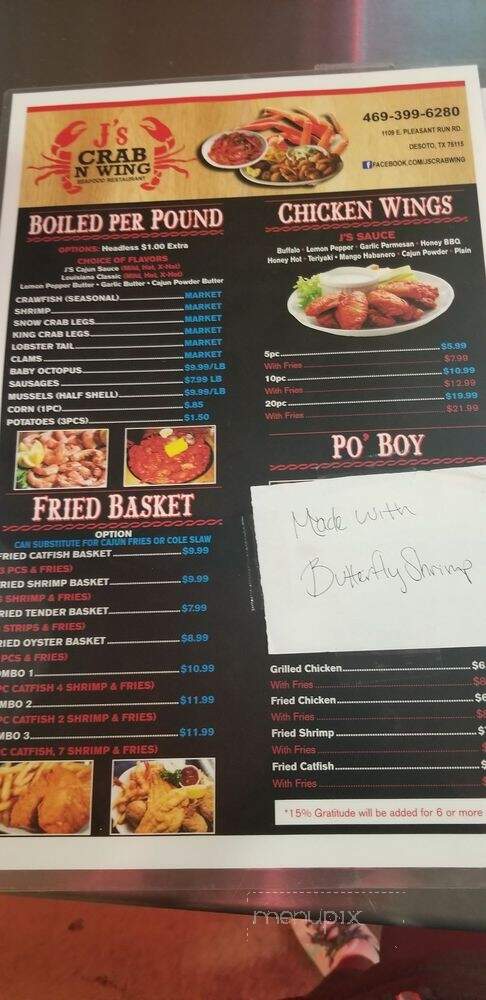 J's
CRAB
N WING
SEAFOOD RESTAURANT
469-399-6280
1109 E. PLEASANT RUN RD.
DESOTO, TX 75115
FACEBOOK.COM/JSCRABWING
BOILED PER POUND
OPTIONS: Headless $1.00 Extra
CHOICE OF FLAVORS
J'S Cajun Sauce (Mild, Hot, X-Hot)
Louisiana Classic (Mild, Hot, X-Hot)
Lemon Pepper Butter • Garlic Butter • Cajun Powder Butter
CRAWFISH (SEASONAL) MARKET
SHRIMP MARKET
SNOW CRAB LEGS MARKET
KING CRAB LEGS MARKET
LOBSTER TAIL MARKET
CLAMS MARKET
BABY OCTOPUS $9.99/LB
SAUSAGES $7.99 LB
MUSSELS (HALF SHELL) $9.99/LB
CORN (1PC) $.85
POTATOES (3PCS) $1.50
FRIED BASKET
OPTION
CAN SUBSTITUTE FOR CAJUN FRIES OR COLE SLAW
FRIED CATFISH BASKET $9.99
3 PCS & FRIES)
RIED SHRIMP BASKET $9.99
SHRIMP & FRIES)
RIED TENDER BASKET $7.99
STRIPS & FRIES)
RIED OYSTER BASKET $8.99
PCS & FRIES)
OMBO 1 $10.99
PC CATFISH 4 SHRIMP & FRIES)
MBO 2 $11.99
PC CATFISH 2 SHRIMP & FRIES)
MBO 3 $11.99
C CATFISH, 7 SHRIMP & FRIES)
CHICKEN WINGS
J'S SAUCE
Buffalo • Lemon Pepper • Garlic Parmesan • Honey BBQ
Honey Hot • Teriyaki • Mango Habanero • Cajun Powder • Plain
5pc $5.99
With Fries $7.99
10pc $10.99
With Fries $12.99
20pc $19.99
With Fries $21.99
PO' BOY
Made with
Butterfly Shrimp
Grilled Chicken $6
With Fries $8
Fried Chicken $6
With Fries $8
Fried Shrimp $
With Fries $
Fried Catfish $
With Fries $
*15% Gratitude will be added for 6 or more
menupix